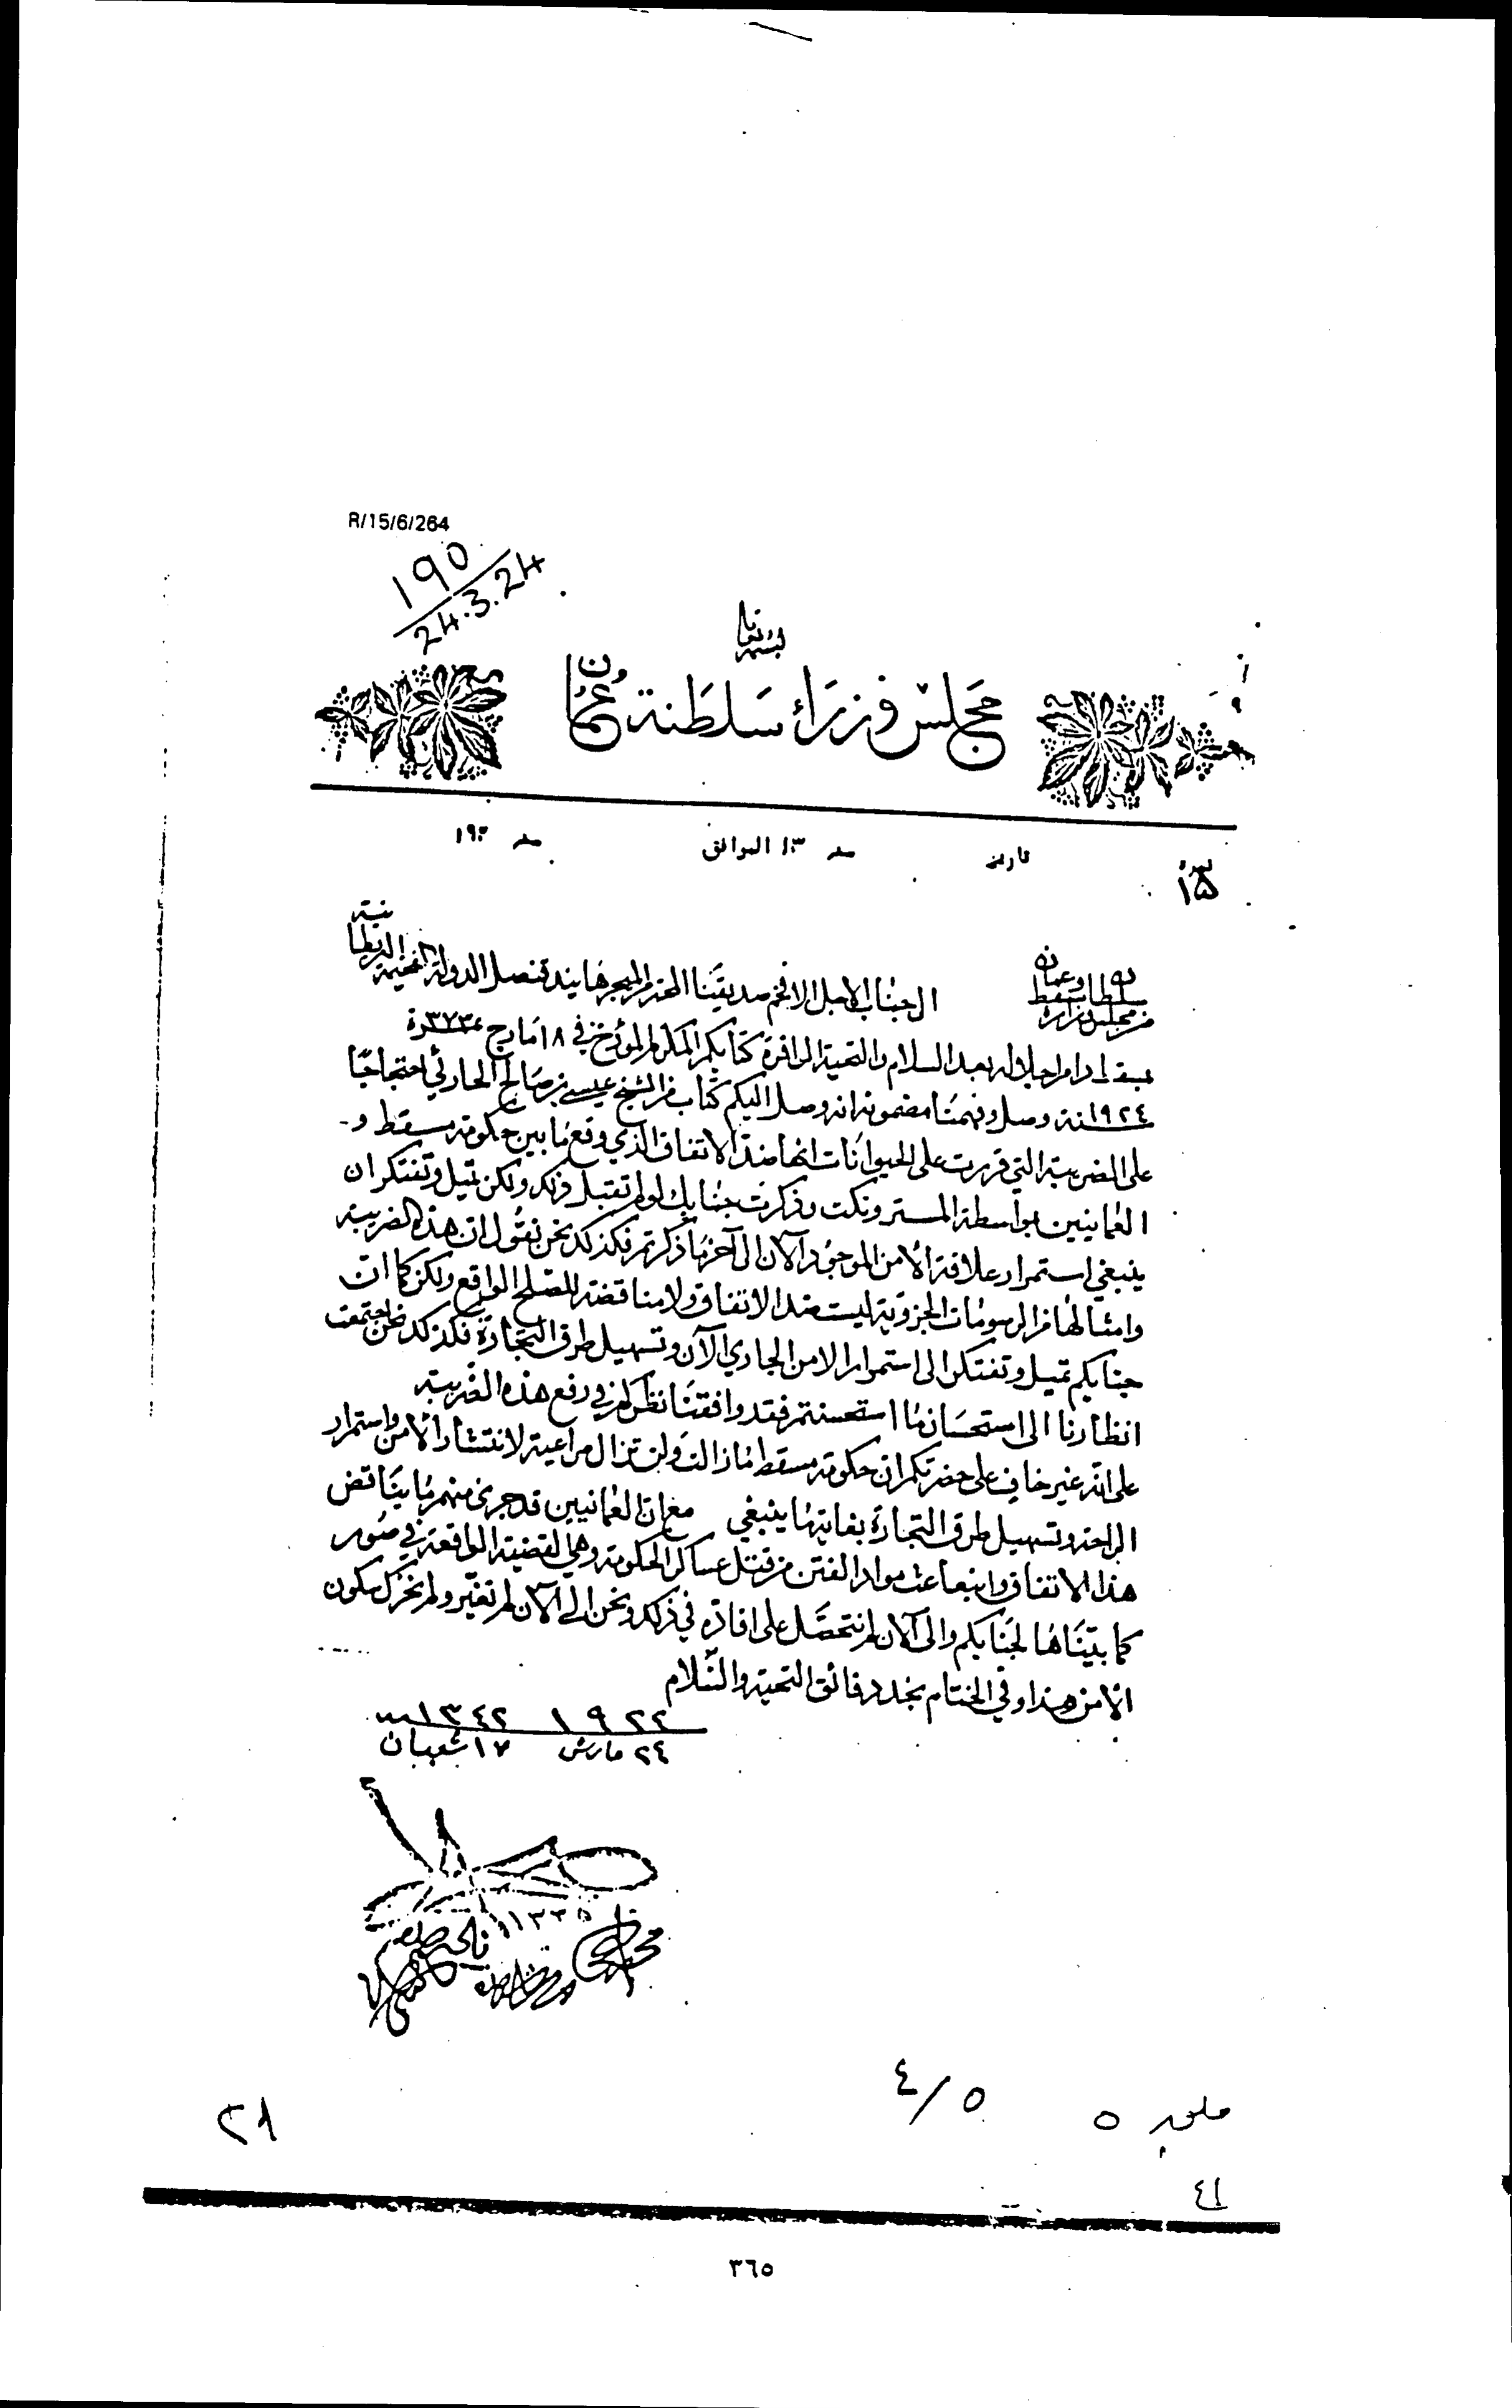 R/15/6/264
190
24.3.24
مجلس وزراء سلطنة عمان
تاريخ سنه ١٣ الموافق سنه ١٩٢
من مجلس وزارة سلطان مسقط وعمان
الجناب الاجل الافخم صديقنا المحترم الميجر هايند قنصل الدولة الفخيمة البريطانية
بمسقط دام اجلاله بعد السلام والتحية الوافرة كتابكم المكرم المؤرخ في ١٨ مارج
سنة ١٩٢٤ وصل وفهمنا مضمونه انه وصل اليكم كتاب من الشيخ عيسى بن صالح الحارثي احتجاجًا
على الضريبة التي قررت على الحيوانات انها ضد الاتفاق الذي وقع ما بين حكومة مسقط و
العمانيين بواسطة المستر ونكت وذكرت جنابك لو لم تقبل ذلك ولكن تميل وتفتكر ان
ينبغي استمرار علاقة الامن الموجود الآن الى آخر ما ذكرتم فكذلك نحن نقول ان هذه الضريبة
وامثالها من الرسومات الجزوية ليست ضد الاتفاق ولا مناقضة للصلح الواقع ولكن كما ان
جنابكم تميل وتفتكر الى استمرار الامن الجاري الآن وتسهيل طرق التجارة فكذلك نحن اجتمعت
انظارنا الى استحسان ما استحسنتم فقد وافقنا نظركم في رفع هذه الضريبة
على انه غير خاف على حضرتكم ان حكومة مسقط ما زالت ولن تزال مراعية لانتشار الامن واستمرار
الراحة وتسهيل طرق التجارة بغاية ما ينبغي مع ان العمانيين قد جرى منهم ما يناقض
هذا الاتفاق وانبعاث مواد الفتن من قتل عساكر الحكومة وهي القضية الواقعة في صور
كما بيناها لجنابكم والى الآن لم نتحصل على افادة في ذلك ونحن الى الآن لم نغير ولم نحرك سكون
الامن هذا وفي الختام نجدد فائق التحية والسلام
١٩٢٤ ١٣٤٢
٢٤ مارش ١٧ شعبان
١٣٣٥
٤/٥
ملحق ٥
٢٨
٤١
٣٦٥